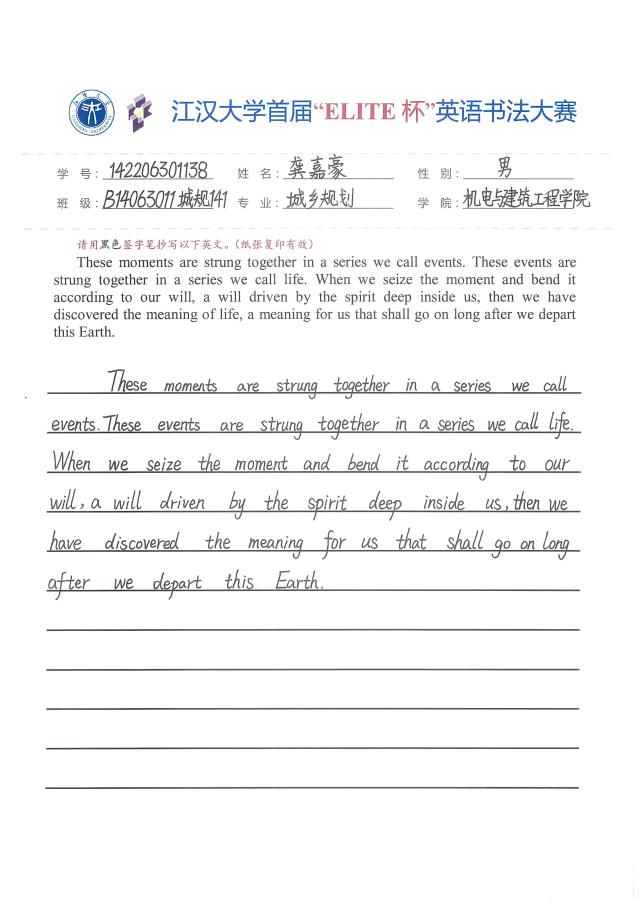 江汉大学首届“ELITE 杯”英语书法大赛
学 号: 142206301138 姓 名: 龚嘉豪 性 别: 男
班 级: B14063011城规141 专 业: 城乡规划 学 院: 机电与建筑工程学院
请用黑色签字笔抄写以下英文。(纸张复印有效)
These moments are strung together in a series we call events. These events are
strung together in a series we call life. When we seize the moment and bend it
according to our will, a will driven by the spirit deep inside us, then we have
discovered the meaning of life, a meaning for us that shall go on long after we depart
this Earth.
These moments are strung together in a series we call
events. These events are strung together in a series we call life.
When we seize the moment and bend it according to our
will, a will driven by the spirit deep inside us, then we
have discovered the meaning for us that shall go on long
after we depart this Earth.